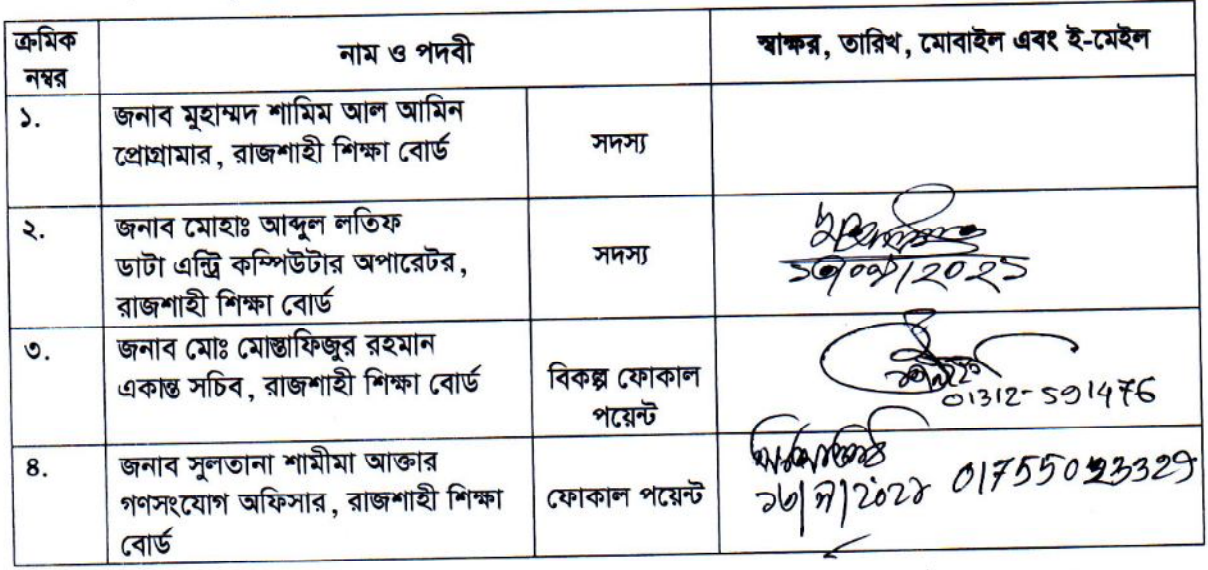 ক্রমিক নম্বর
নাম ও পদবী
স্বাক্ষর, তারিখ, মোবাইল এবং ই-মেইল
১.
জনাব মুহাম্মদ শামিম আল আমিন
প্রোগ্রামার, রাজশাহী শিক্ষা বোর্ড
সদস্য
২.
জনাব মোহাঃ আব্দুল লতিফ
ডাটা এন্ট্রি কম্পিউটার অপারেটর,
রাজশাহী শিক্ষা বোর্ড
সদস্য
৩.
জনাব মোঃ মোস্তাফিজুর রহমান
একান্ত সচিব, রাজশাহী শিক্ষা বোর্ড
বিকল্প ফোকাল
পয়েন্ট
01312-591476
৪.
জনাব সুলতানা শামীমা আক্তার
গণসংযোগ অফিসার, রাজশাহী শিক্ষা
বোর্ড
ফোকাল পয়েন্ট